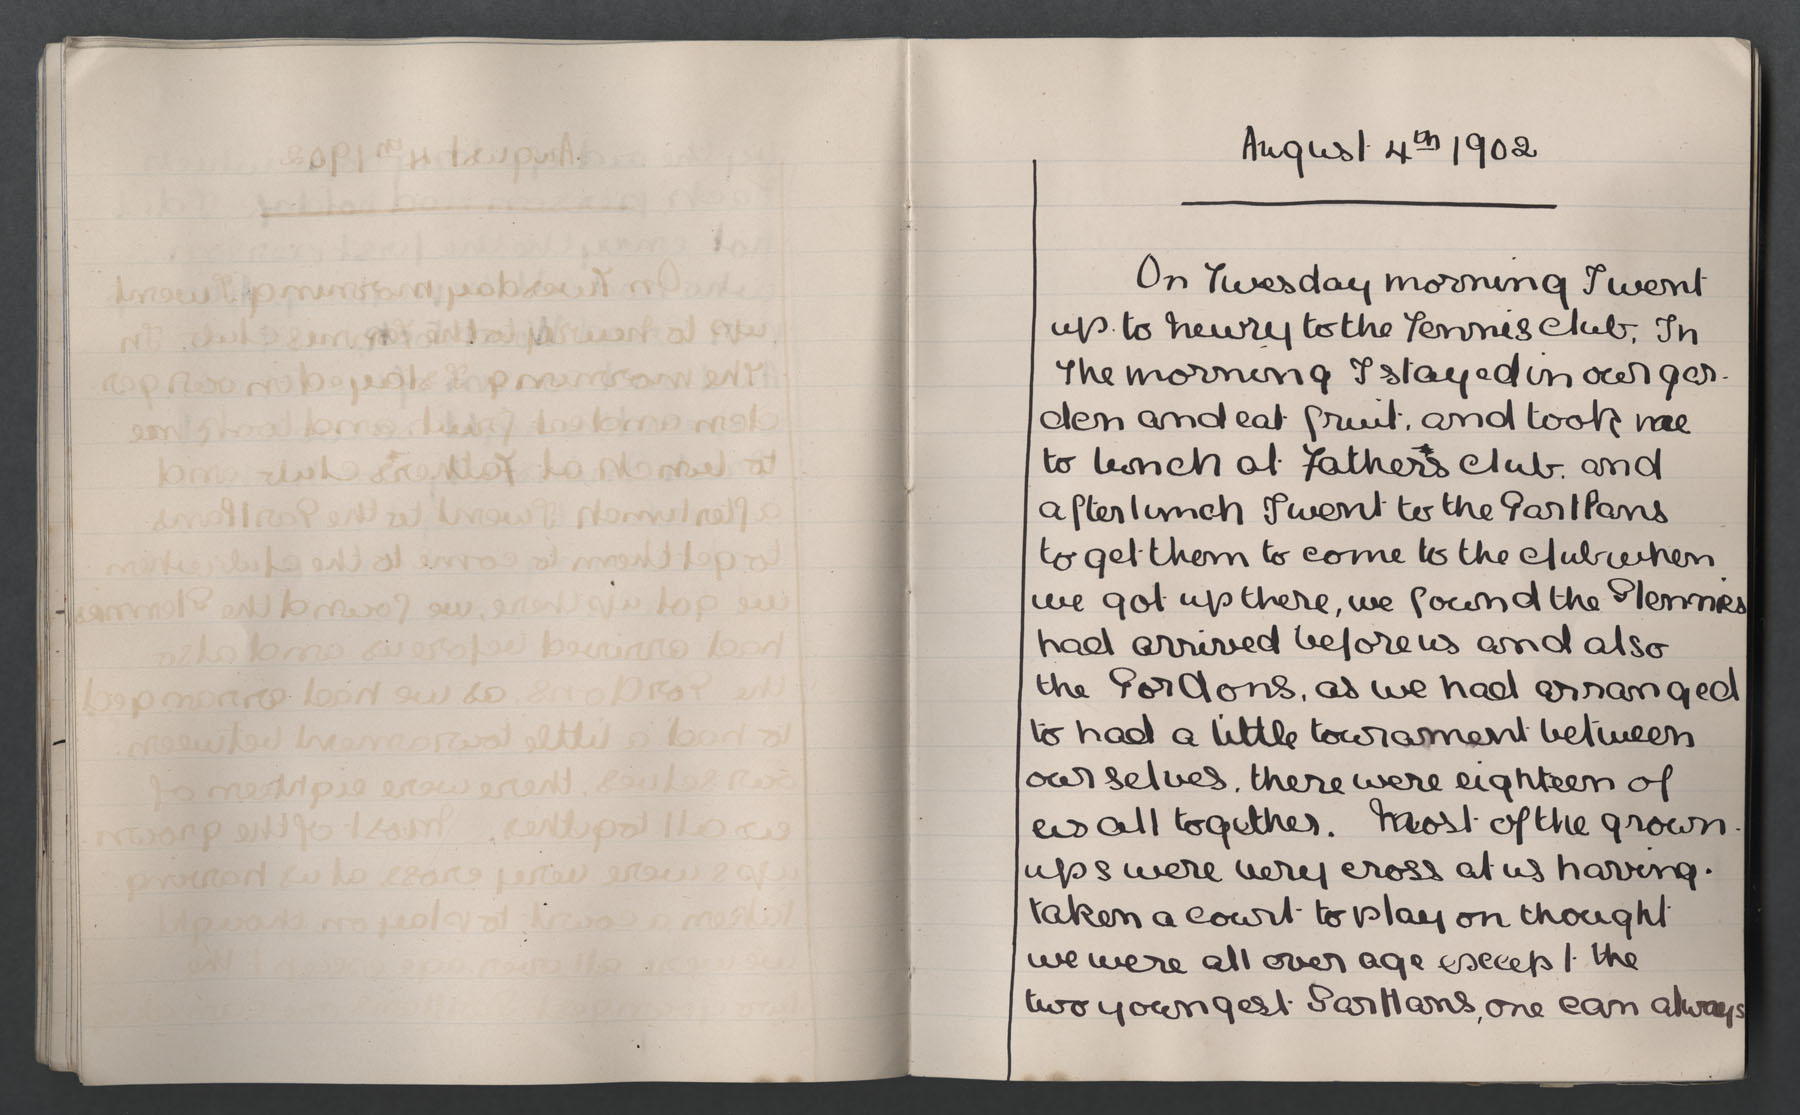 August 4th 1902
On Tuesday morning I went
up to Newry to the Tennis club. In
the morning I stayed in our gar-
den and eat fruit. and took me
to lunch at Father's club. and
after lunch I went to the
to get them to come to the club when
we got up there, we found the Glennies
had arrived before us and also
the Gordons, as we had arranged
to had a little tournament between
our selves. there were eighteen of
us all together. Most of the grown-
ups were very cross at us having.
taken a court to play on thought
we were all over age except the
two youngest one can always